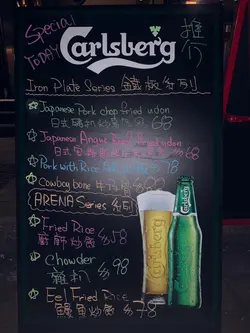 Special
TODAY
推介
Carlsberg
Iron Plate Series 鐵板系列
Japanese Pork chop fried udon
日式 $68
Japanese Angus Beef fried udon
日式
Pork with Rice $78
Cowboy bone
ARENA Series 系列
Fried Rice
炒飯 $58
Chowder
$98
Eel Fried Rice
鰻魚炒飯 $78
Carlsberg
Carlsberg